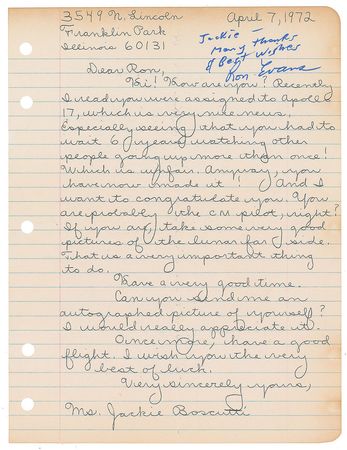 3549 N. Lincoln April 7, 1972
Franklin Park
Illinois 60131
Jackie —
Many thanks
& Best Wishes
Ron Evans
Dear Ron,
Hi! How are you? Recently
I read you were assigned to Apollo
17, which is very nice news.
Especially seeing that you had to
wait 6 years watching other
people going up more than once!
Which is unfair. Anyway, you
have now made it! And I
want to congratulate you. You
are probably the CM pilot, right?
If you are, take some very good
pictures of the lunar far side.
That is a very important thing
to do.
Have a very good time.
Can you send me an
autographed picture of yourself?
I would really appreciate it.
Once more, have a good
flight. I wish you the very
best of luck.
Very sincerely yours,
Ms. Jackie Boscutti